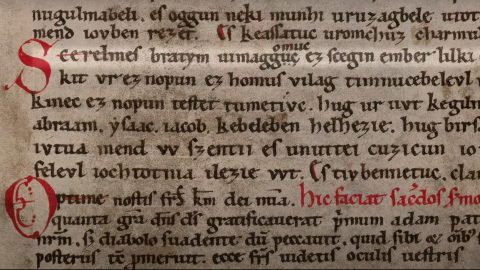 nugulmabeli, es oggun neki munhi uruzagbele utot
mend iovben rezet. Es keassatuc uromchuz charmul
Scerelmes bratym uimagguc omuc ez scegin ember lilki
kit vr ez nopun ez homus vilag timnucebelevl
kinec ez nopun testet tumetivc. hug ur uvt kegilm
abraam, ysaac. iacob. kebeleben helhezie. hug birs
ivtva mend vv szentii es unuttei cuzicun iov
felevl iochtotnia ilezie vvt. Es tivbennetuc, clam
Optime nostis frs̄ km̄ dei mīa. Hic faciat sac̄dos s̄mo
quanta grā dn̄s ds̄ gratificauerat p̄mum adam pat
nr̄m, sꝫ diabolo suadente dū peccauit, quid sibi
posteris ecce frs̄ videtis oculis uestris